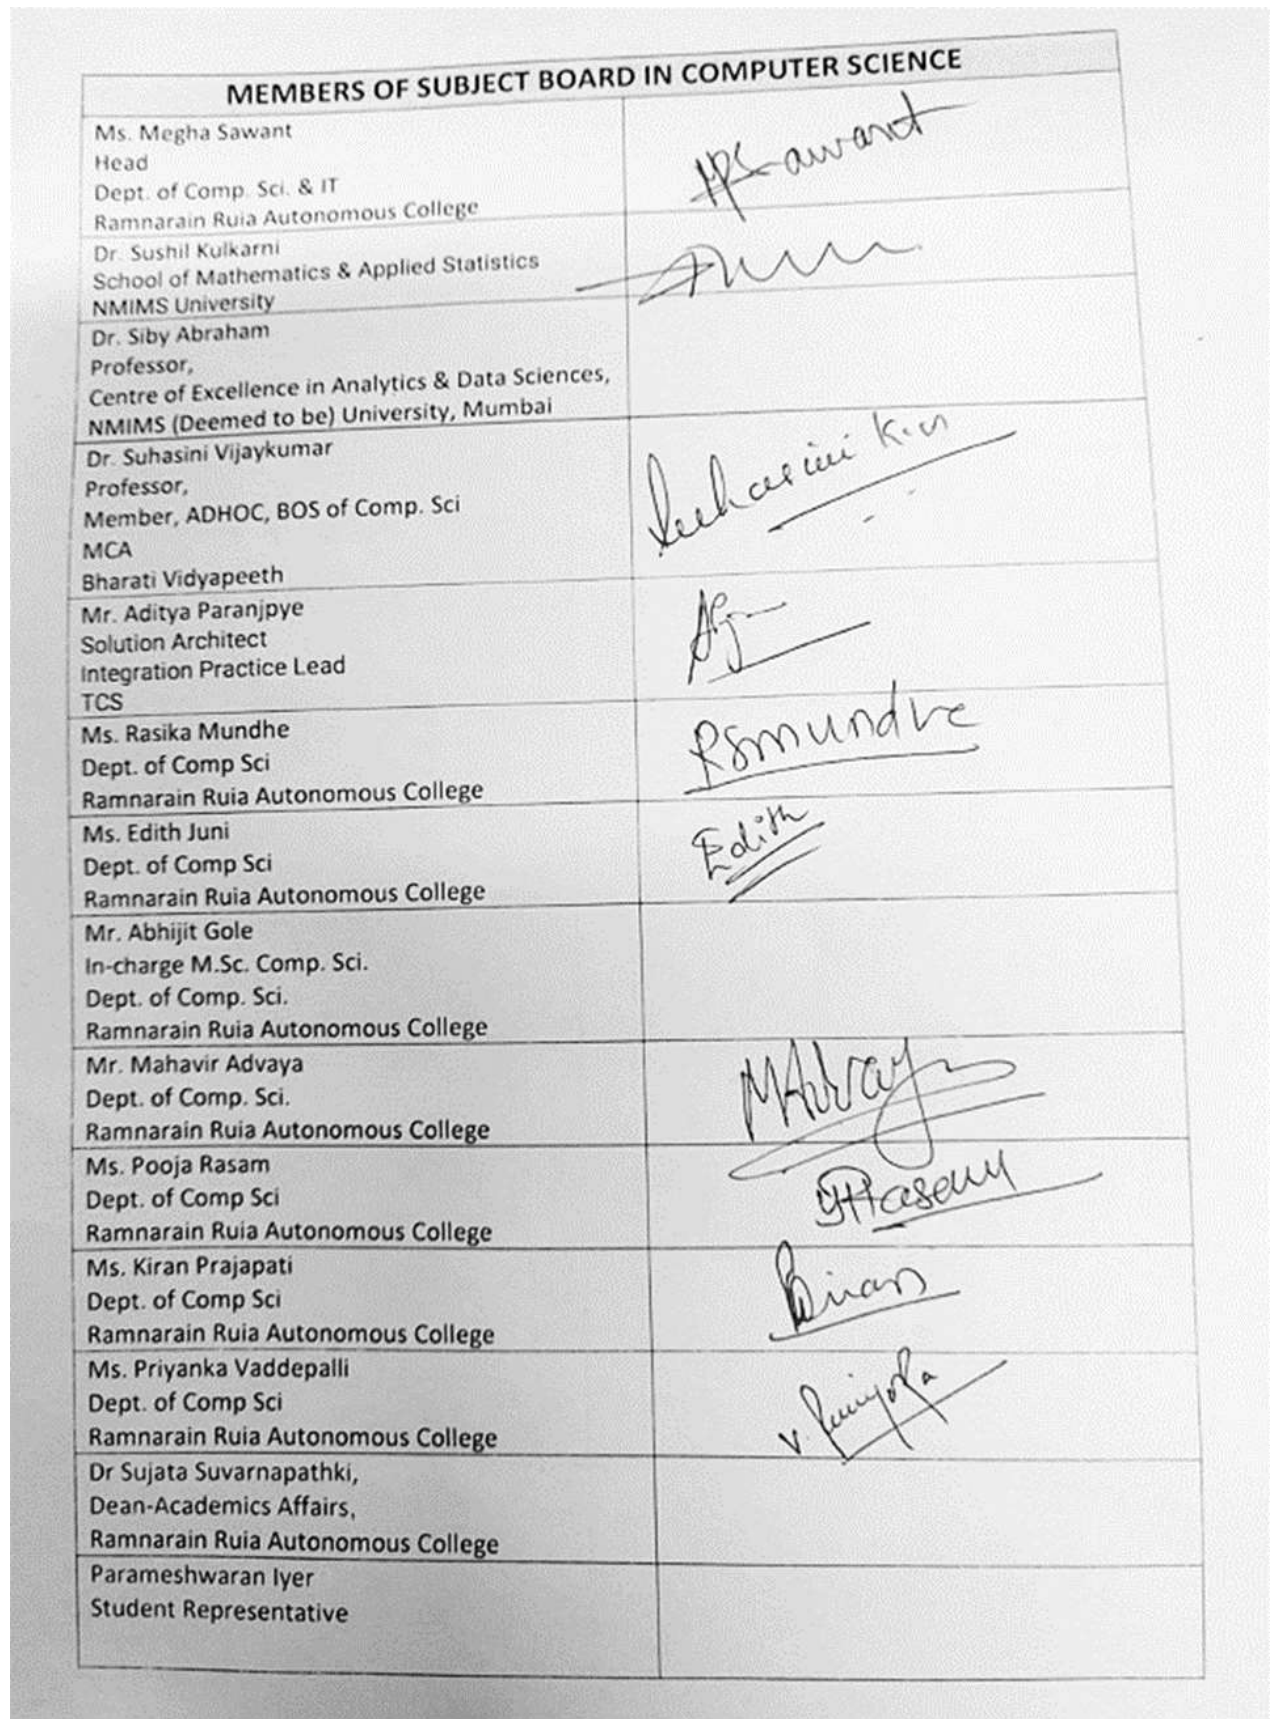 MEMBERS OF SUBJECT BOARD IN COMPUTER SCIENCE
Ms. Megha Sawant
Head
Dept. of Comp. Sci. & IT
Ramnarain Ruia Autonomous College
Dr. Sushil Kulkarni
School of Mathematics & Applied Statistics
NMIMS University
Dr. Siby Abraham
Professor,
Centre of Excellence in Analytics & Data Sciences,
NMIMS (Deemed to be) University, Mumbai
Dr. Suhasini Vijaykumar
Professor,
Member, ADHOC, BOS of Comp. Sci
MCA
Bharati Vidyapeeth
Suhasini
Mr. Aditya Paranjpye
Solution Architect
Integration Practice Lead
TCS
Ms. Rasika Mundhe
Dept. of Comp Sci
Ramnarain Ruia Autonomous College
RSmundhe
Ms. Edith Juni
Dept. of Comp Sci
Ramnarain Ruia Autonomous College
Edith
Mr. Abhijit Gole
In-charge M.Sc. Comp. Sci.
Dept. of Comp. Sci.
Ramnarain Ruia Autonomous College
Mr. Mahavir Advaya
Dept. of Comp. Sci.
Ramnarain Ruia Autonomous College
Ms. Pooja Rasam
Dept. of Comp Sci
Ramnarain Ruia Autonomous College
Ms. Kiran Prajapati
Dept. of Comp Sci
Ramnarain Ruia Autonomous College
Ms. Priyanka Vaddepalli
Dept. of Comp Sci
Ramnarain Ruia Autonomous College
Dr Sujata Suvarnapathki,
Dean-Academics Affairs,
Ramnarain Ruia Autonomous College
Parameshwaran Iyer
Student Representative